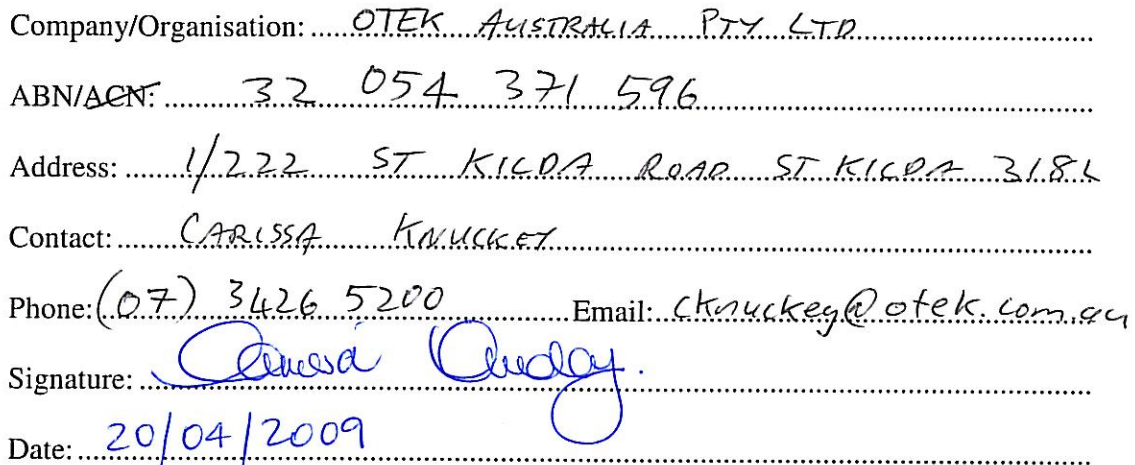 Company/Organisation: OTEK AUSTRALIA PTY LTD
ABN/ACN: 32 054 371 596
Address: 1/222 ST KILDA ROAD ST KILDA 3182
Contact: CARISSA KNUCKEY
Phone: (07) 3426 5200 Email: cknuckey@otek.com.au
Signature: Carissa Knuckey.
Date: 20/04/2009